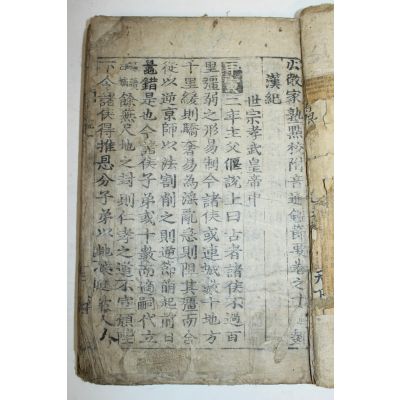 少微家塾點校附音通鑑節要卷之十
漢紀
世宗孝武皇帝中
二年主父偃說上曰古者諸侯不過百
里彊弱之形易制今諸侯或連城數十地方
千里緩則驕奢易爲淫亂急則阻其彊而合
從以逆京師以法割削之則逆節萌起前日
鼂錯是也今諸侯子弟或十數而適嗣代立
餘無尺地之封則仁孝之道不宣願陛
下令諸侯得推恩分子弟以地侯之彼人人